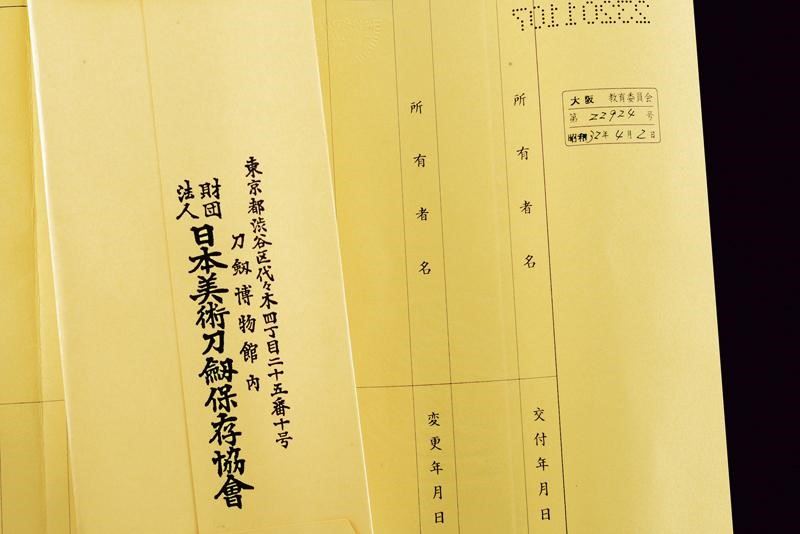 大阪 教育委員会
第 22924 号
昭和32年4月2日
所有者名
交付年月日
所有者名
変更年月日
東京都渋谷区代々木四丁目二十五番十号
刀剱博物館内
財団
法人
日本美術刀剱保存協會